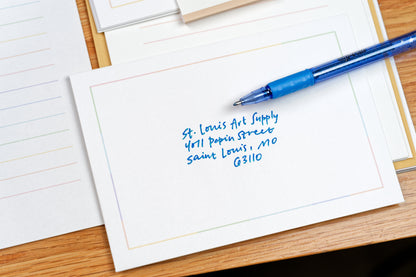 St. Louis Art Supply
4011 Papin Street
Saint Louis, MO
63110